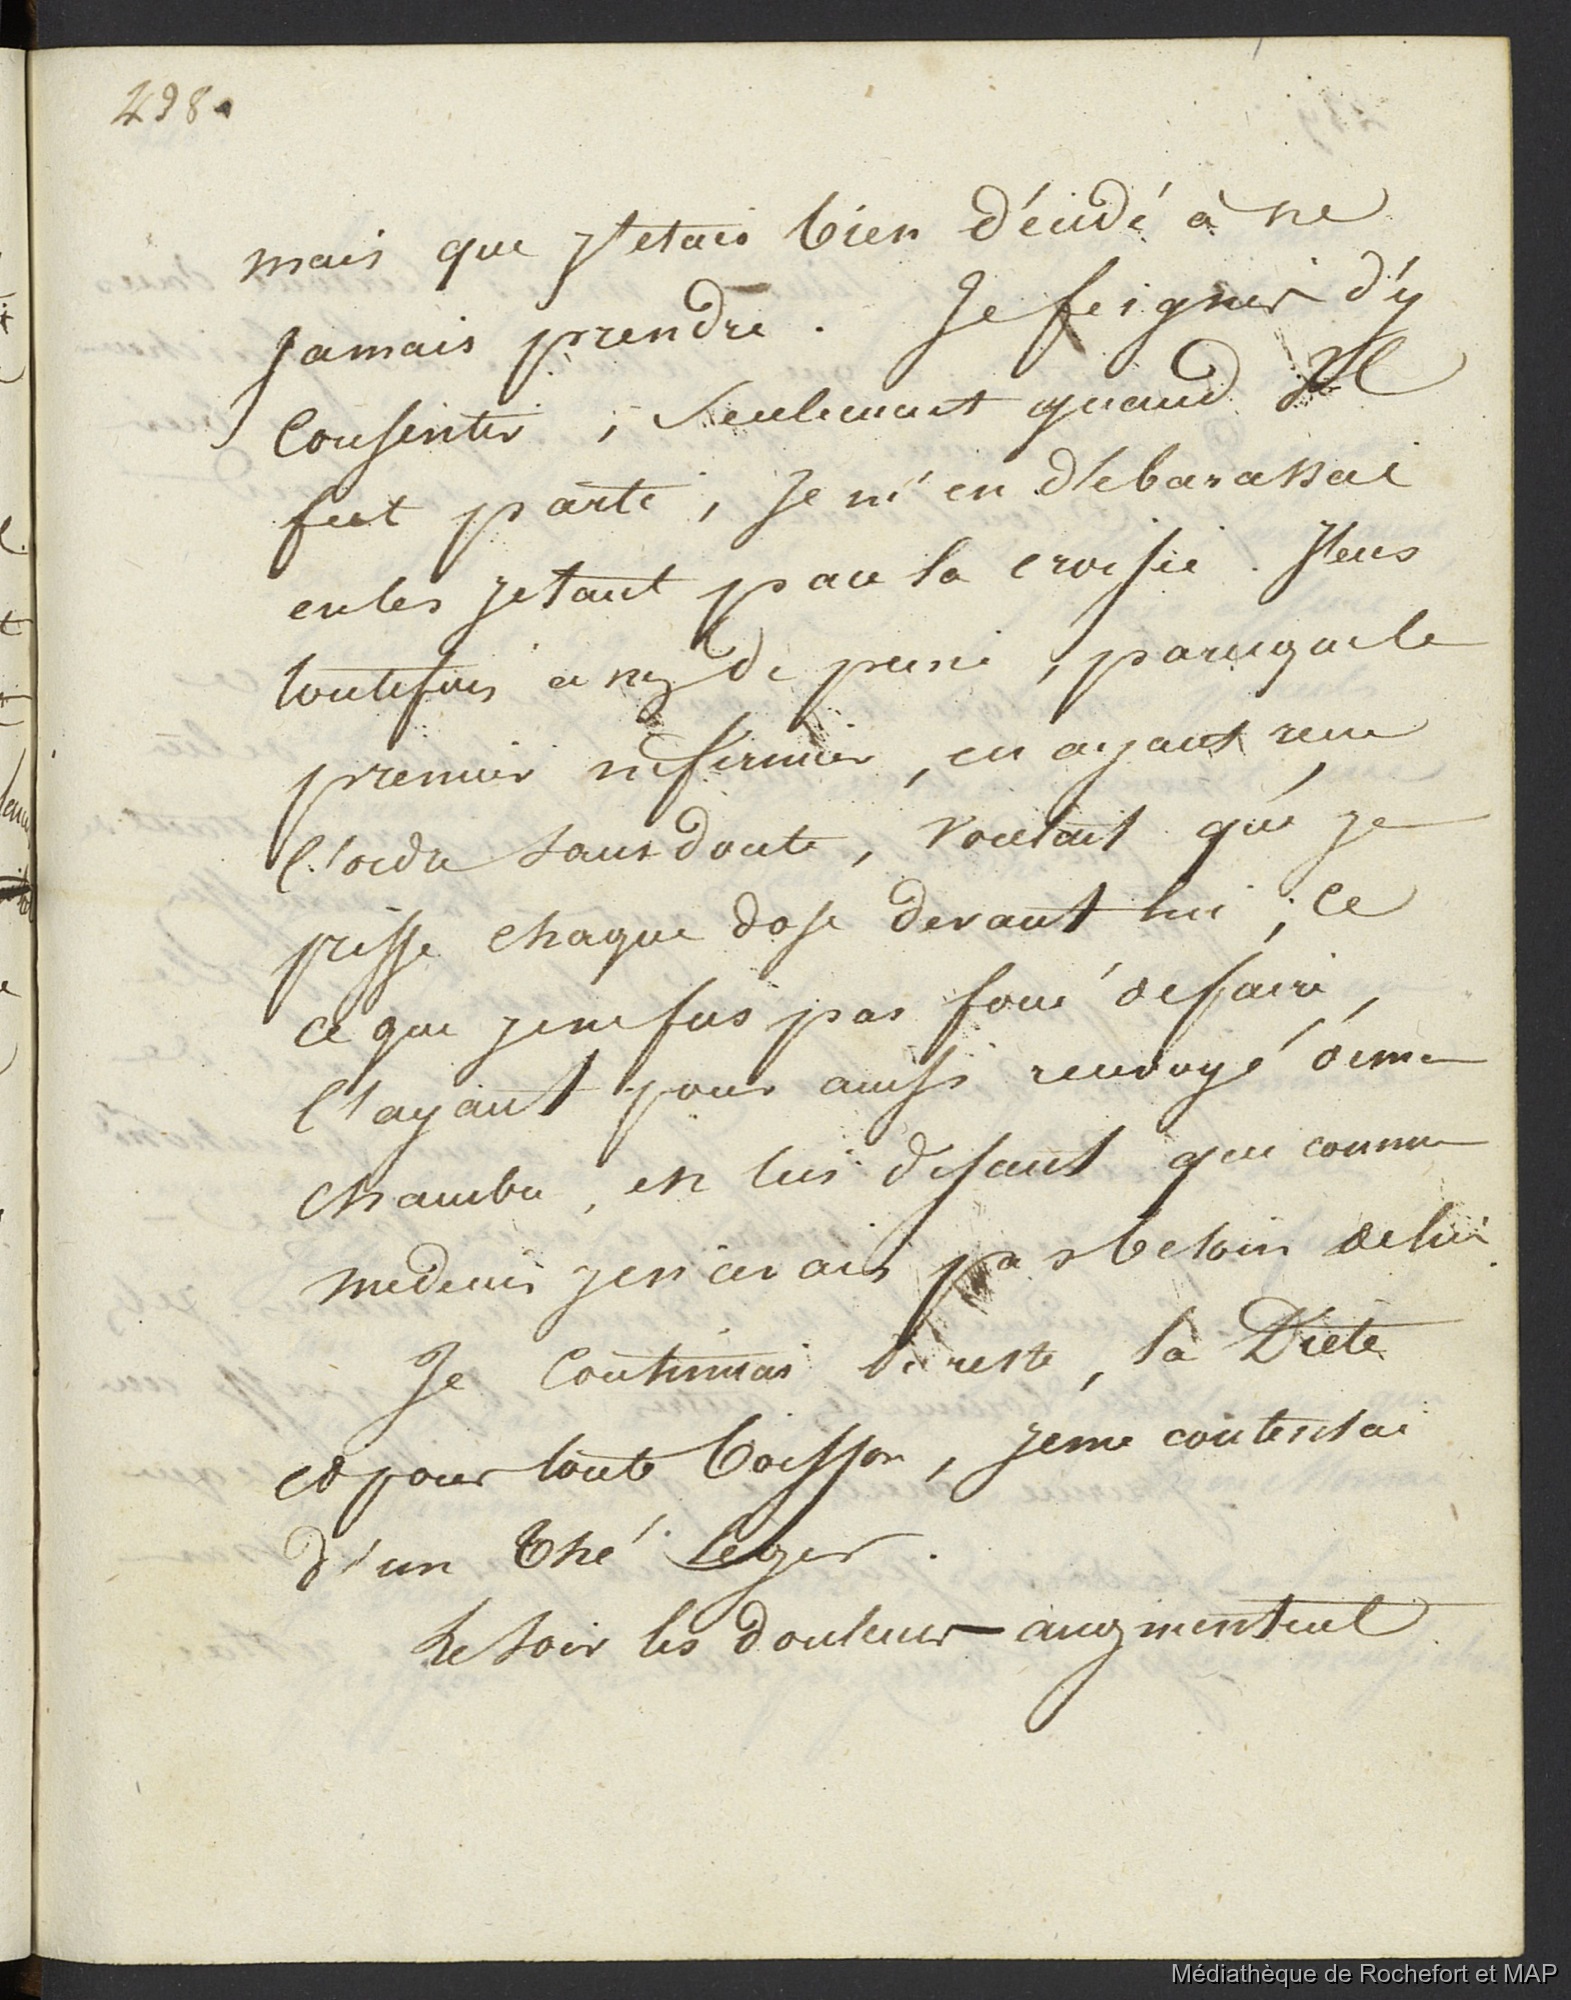 498.
mais que j'etais bien décidé à ne
jamais prendre. Je feignis d'y
consentir, seulement quand Il
fut parti, je m'en débarassai
en les jetant par la croisée. J'eus
toutefois assez de peine, parceque le
premier infirmier, en ayant reçu
l'ordre sans doute, voulait que je
prisse chaque dose devant lui; ce
ce que je ne fus pas forcé de faire,
l'ayant pour ainsi renvoyé de ma
chambre, en lui disant que comme
medecin je n'avais pas besoin de lui.
Je continuai le reste, la Diete
et pour toute boisson, je me contentai
d'un thé Leger.
Le soir les douleurs augmenterent
Médiathèque de Rochefort et MAP